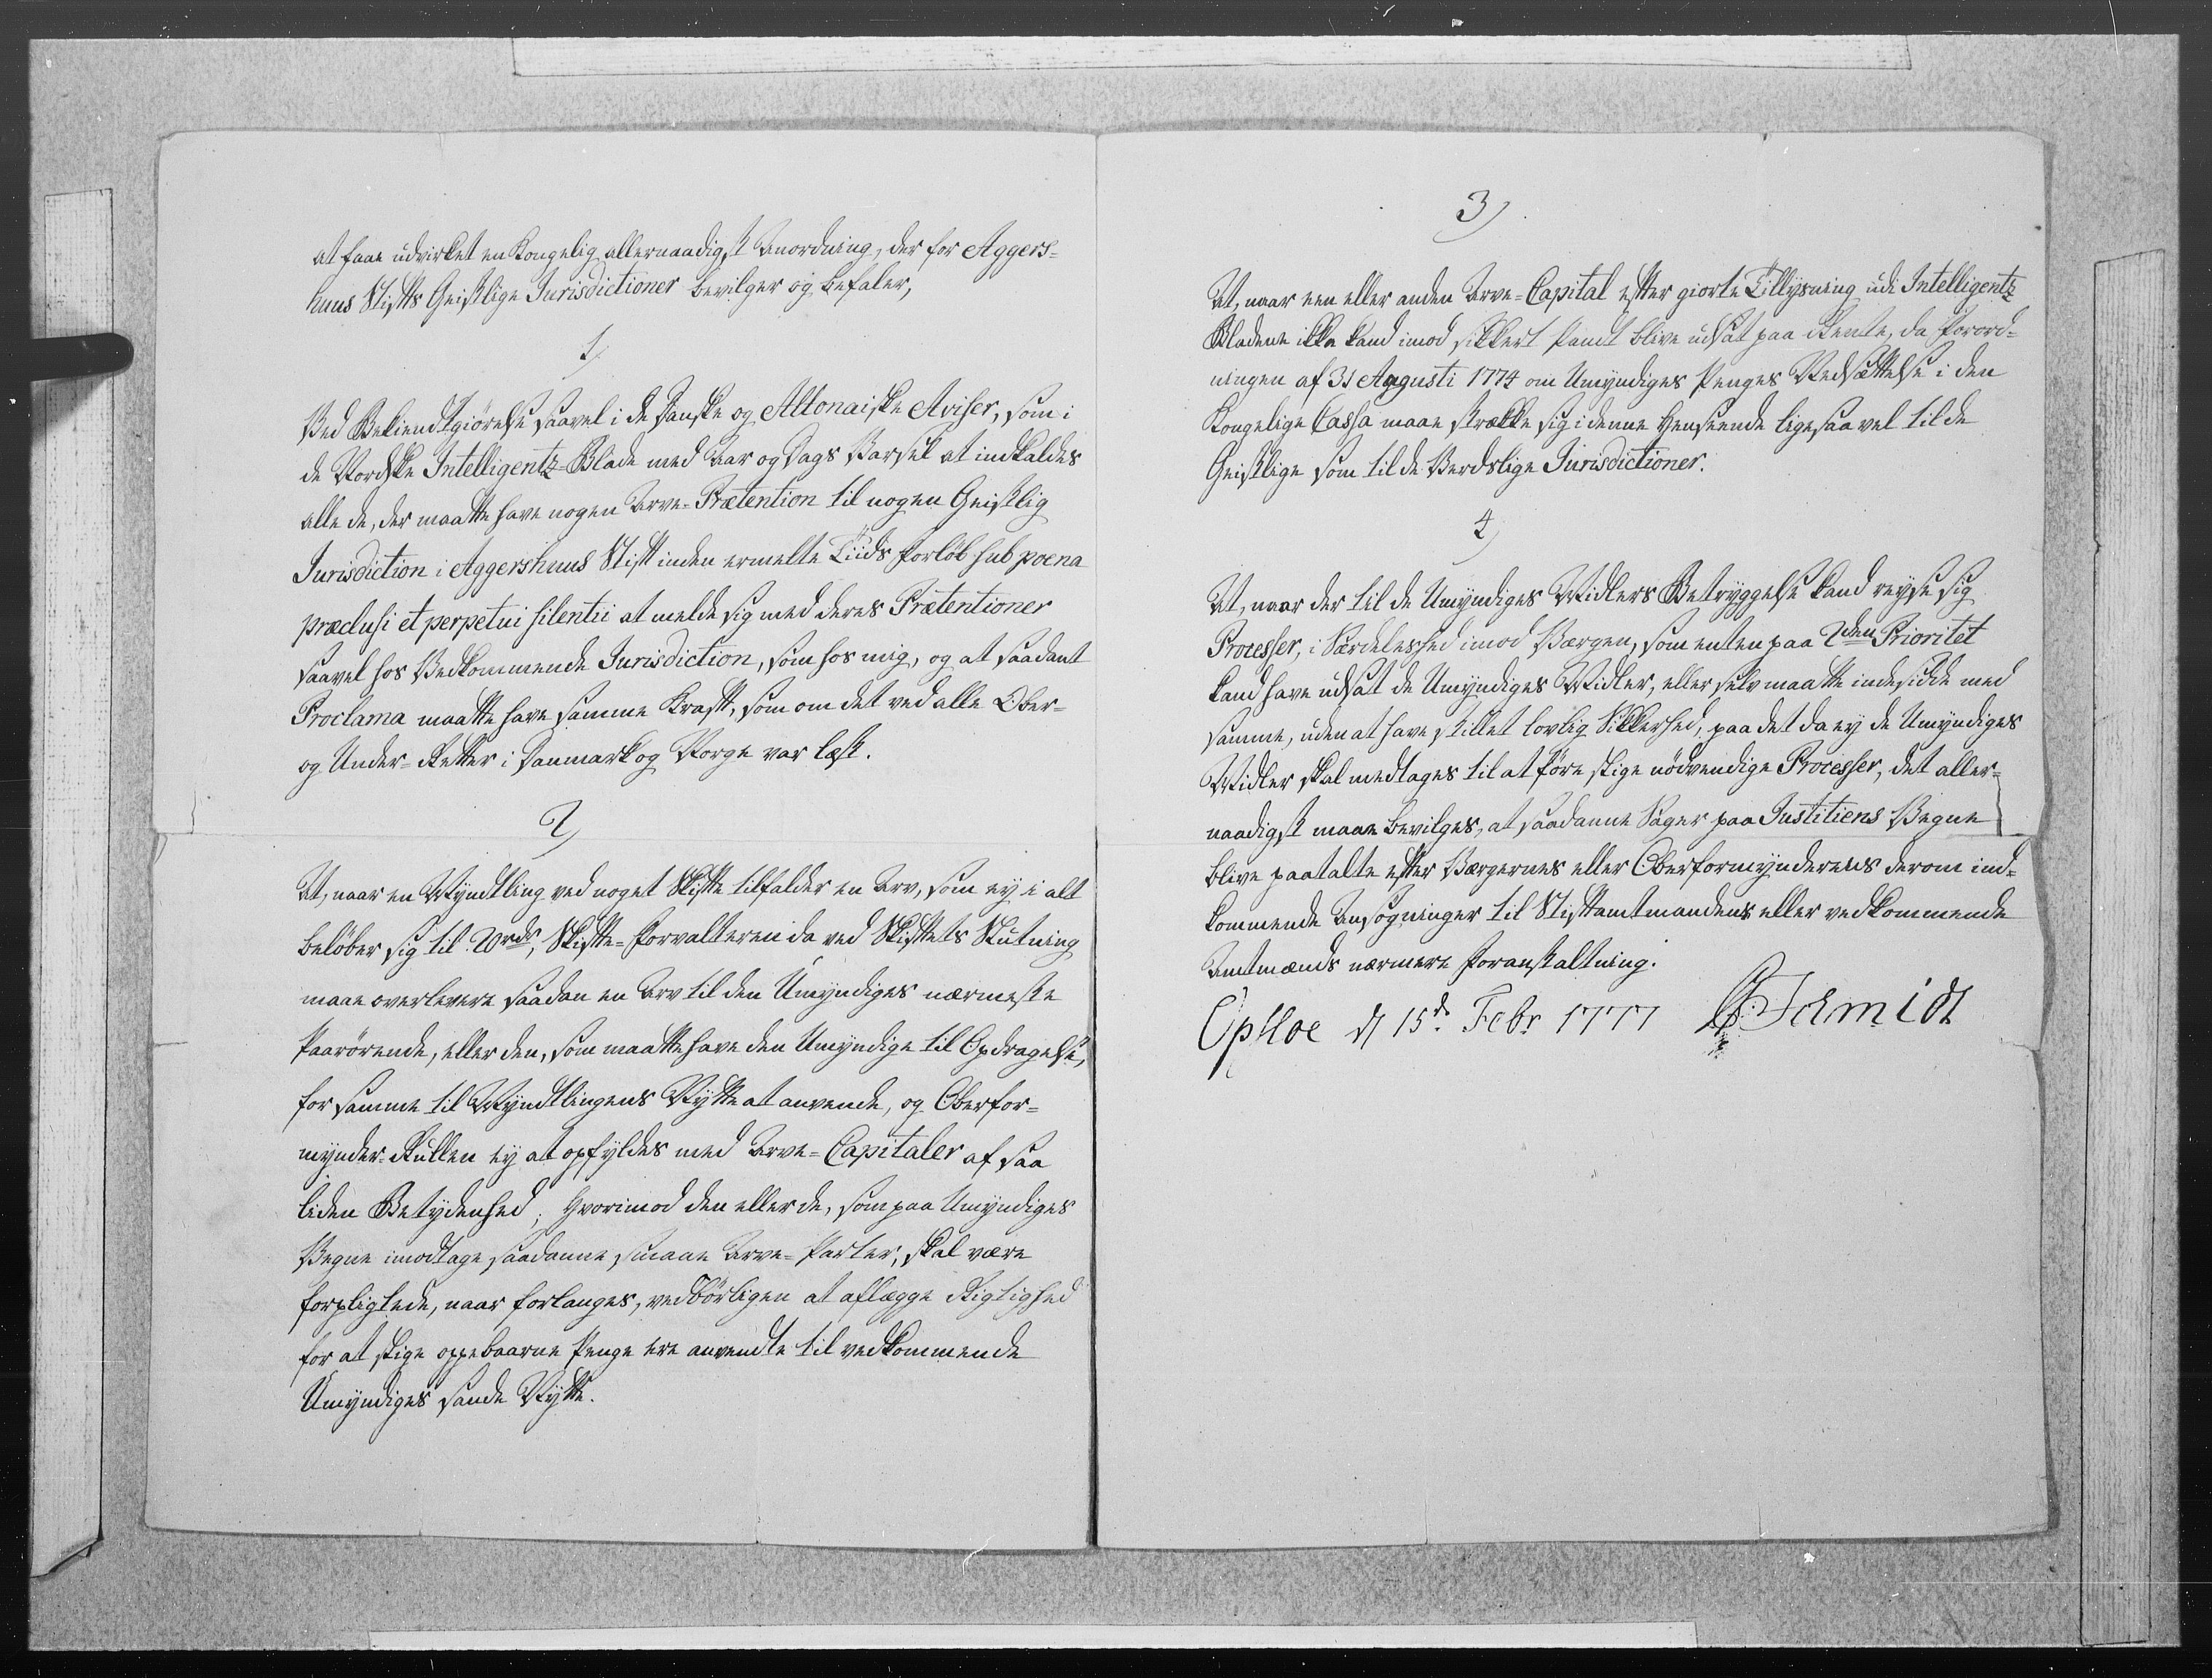 at faae udvirket en Kongelig allernaadigst Anordning, der for Aggers-
huus Stifts Geistlige Jurisdictioner bevilger og befaler,
1)
Ved Bekiendtgiørelse saavel i de Danske og Altonaiske Aviser, som i
de Nordske Intelligentz-Blade med Aar og Dags Varsel at indkaldes
alle de, der maatte have nogen Arve-Prætention til nogen Geistlig
Jurisdiction i Aggershuus Stift inden ermelte Tiids Forløb sub poena
præclusi et perpetui silentii at melde sig med deres Prætentioner
saavel hos Vedkommende Jurisdiction, som hos mig, og at saadant
Proclama maatte have samme Kraft, som om det ved alle Ober-
og Under-Retter i Danmark og Norge var læst.
2)
At, naar en Myndtling ved noget Skifte tilfalder en Arv, som ey i alt
beløber sig til 20rdr, Skifte-Forvalteren da ved Skiftets Slutning
maae overlevere saadan en Arv til den Umyndiges nærmeste
Paarørende, eller den, som maatte have den Umyndige til Opdragelse,
for samme til Myndtlingens Nytte at anvende, og Oberfor-
mynder-Rullen ey at opfyldes med Arve-Capitaler af saa
liden Betydenhed; Hvorimod den eller de, som paa Umyndiges
Vegne imodtage saadanne smaae Arve-Parter, skal være
forpligtede, naar forlanges, vedbørligen at aflægge Rigtighed
for at slige oppebaarne Penge ere anvendte til vedkommende
Umyndiges sande Nytte.
3)
At, naar een eller anden Arve-Capital efter giorte Tillysning udi Intelligentz
Bladene ikke kand imod sikkert Pandt blive udsat paa Rente, da Forord-
ningen af 31 Augusti 1774 om Umyndiges Penges Nedsættelse i den
Kongelige Cassa maae strække sig i denne Henseende ligesaa vel til de
Geistlige som til de Verdslige Jurisdictioner.
4)
At, naar der til de Umyndiges Midlers Betryggelse kand reyse sig
Processer, i Særdeleshed imod Værgen, som enten paa 2den Prioritet
kand have udsat de Umyndiges Midler, eller selv maatte indesidde med
samme, uden at have stillet lovlig Sikkerhed, paa det da ey de Umyndiges
Midler skal medtages til at føre slige nødvendige Processer, det aller-
naadigst maae bevilges, at saadanne Sager paa Justitiens Vegne
blive paatalte efter Værgernes eller Oberformynderens derom ind-
kommende Ansøgninger til Stiftamtmandens eller vedkommende
Amtmænds nærmere Foranstaltning.
Opsloe d 15de Febr 1777 Schmidt